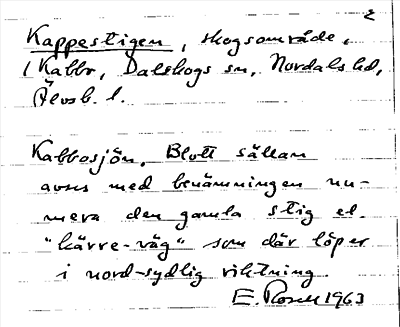 2
Kappestigen, skogsområde,
i Kabbo, Dalskogs sn, Nordals hd,
Älvsb. l.
Kabbosjön. Blott sällan
avses med benämningen nu-
mera den gamla stig el.
"kärre-väg" som där löper
i nord-sydlig riktning
E. Rosell 1963